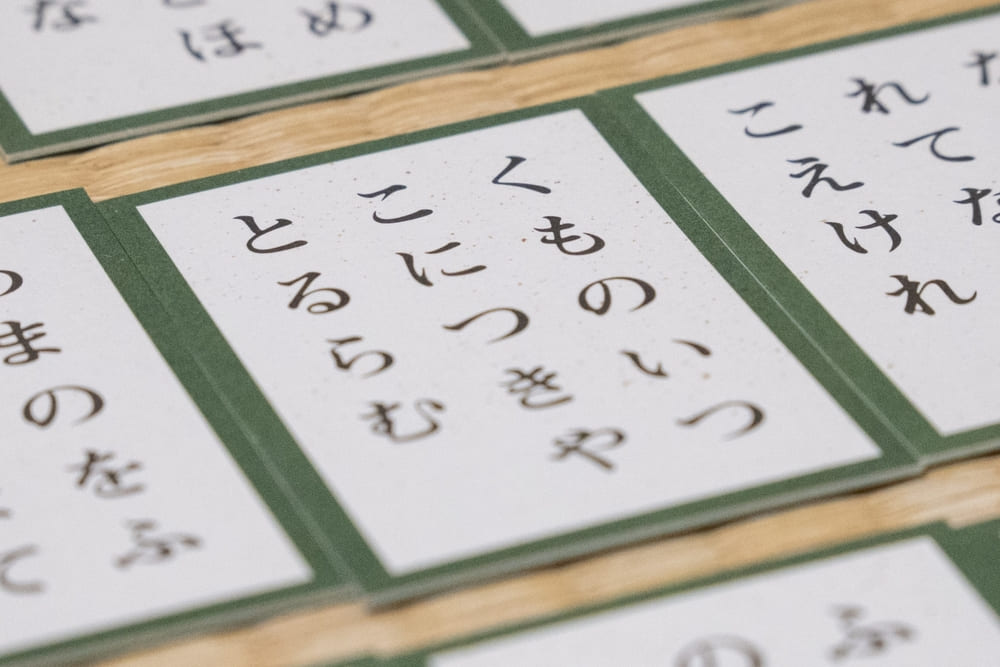 くものいつ
こにつきや
とるらむ
れてな
こえけれ
まのをふ
ほ
め
のふ